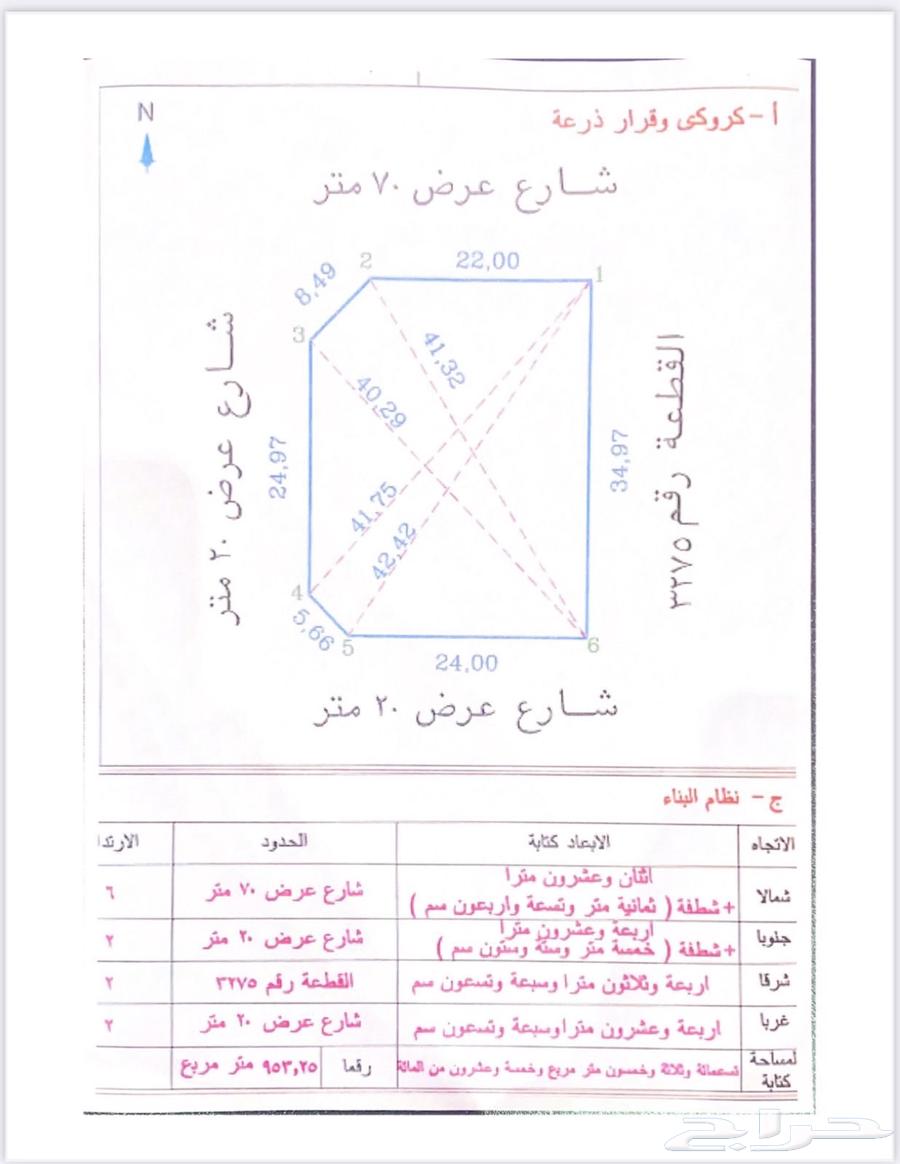 أ - كروكى وقرار ذرعة
N
شارع عرض ٧٠ متر
2
22,00
1
8,49
3
41,32
40,29
شارع عرض ٢٠ متر
24,97
34,97
القطعة رقم ٣٢٧٥
41,75
42,42
4
5,66
5
6
24,00
شارع عرض ٢٠ متر
ج - نظام البناء
الاتجاه الابعاد كتابة الحدود الارتدا
شمالا اثنان وعشرون مترا شارع عرض ٧٠ متر ٦
+ شطفة ( ثمانية متر وتسعة واربعون سم )
جنوبا اربعة وعشرون مترا شارع عرض ٢٠ متر ٢
+ شطفة ( خمسة متر وستة وستون سم )
شرقا اربعة وثلاثون مترا وسبعة وتسعون سم القطعة رقم ٣٢٧٥ ٢
غربا اربعة وعشرون مترا وسبعة وتسعون سم شارع عرض ٢٠ متر ٢
لمساحة كتابة تسعمائة وثلاثة وخمسون متر مربع وخمسة وعشرون من المائة رقما ٩٥٣,٢٥ متر مربع
حراج